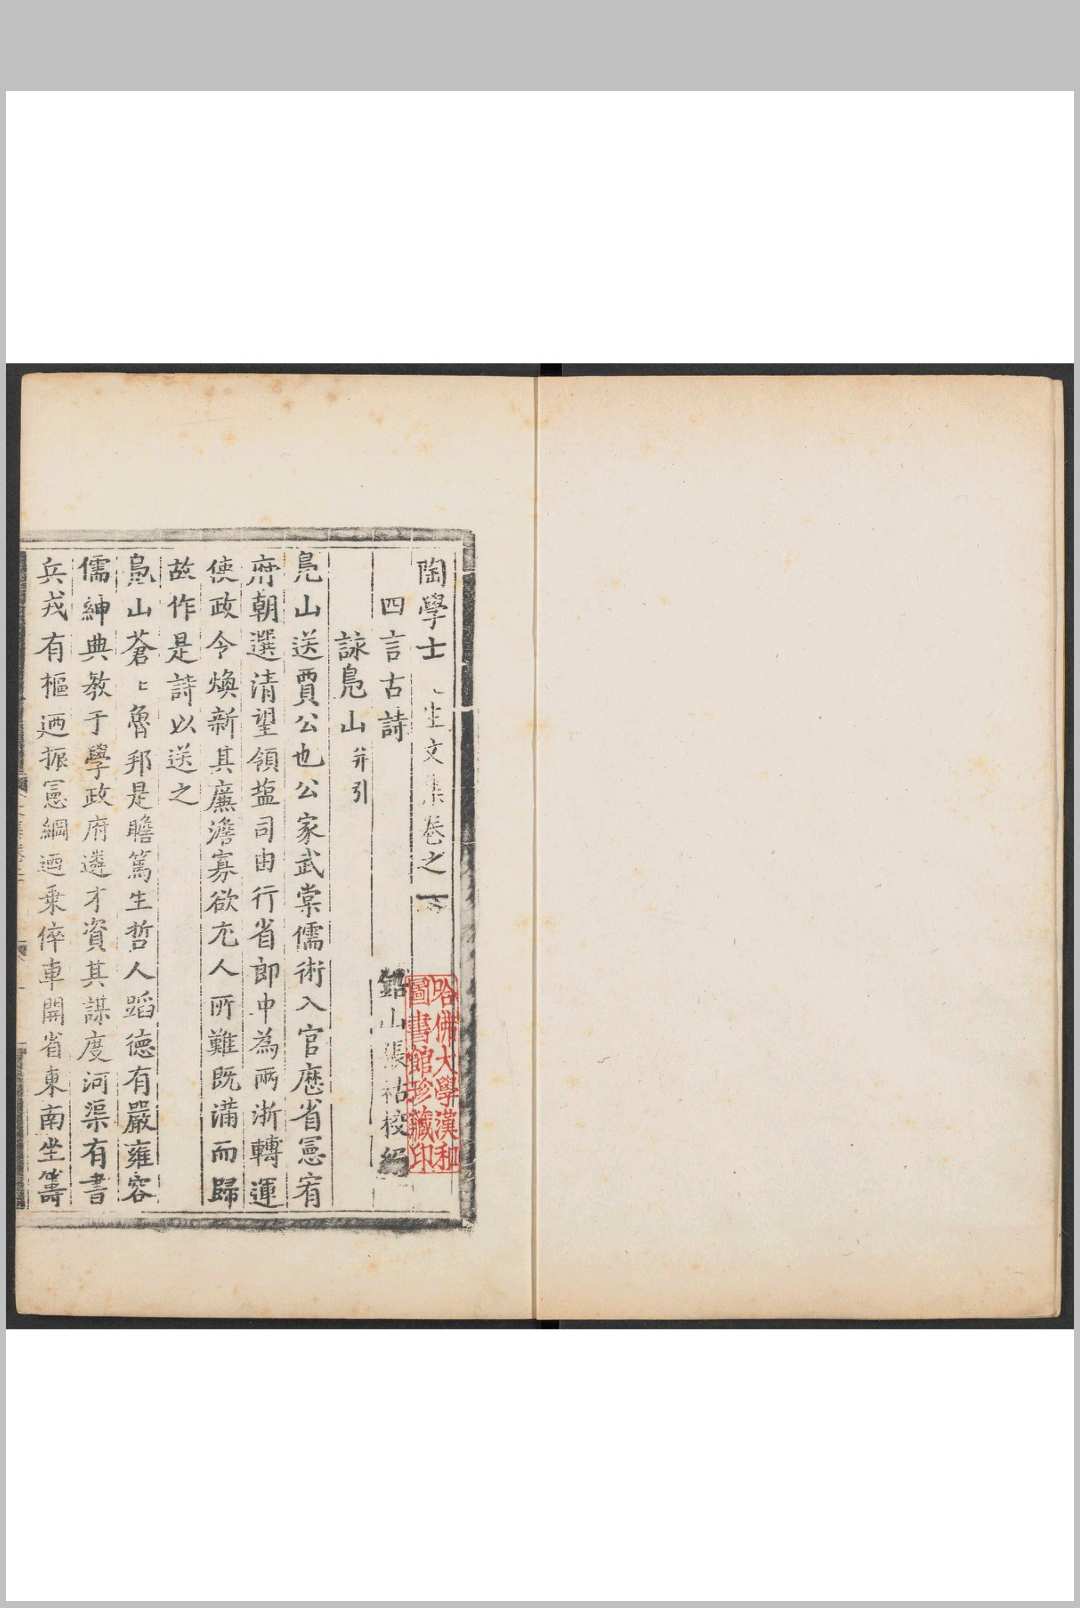 陶學士先生文集卷之一
四言古詩
鉛山張祜校編
詠鳧山 并引
鳧山送賈公也公家武棠儒術入官歷省憲宥
府朝選清望領盐司由行省郎中為兩浙轉運
使政令煥新其廉澹寡欲尤人所難既滿而歸
故作是詩以送之
鳧山蒼〻魯邦是瞻篤生哲人蹈德有嚴雍容
儒紳典教于學政府遴才資其謀度河渠有書
兵戎有樞迺振憲綱迺乗倅車開省東南坐籌
哈佛大學漢和
圖書館珍藏印